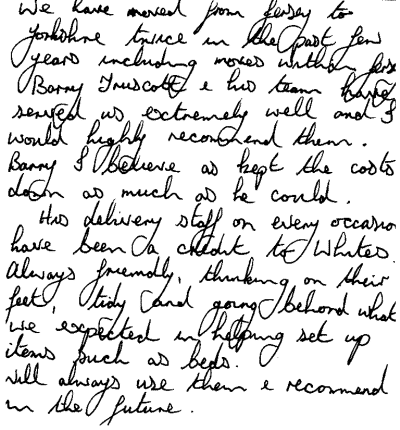 We have moved from Jersey to
Yorkshire twice in the past few
years including moves within Jerse
Barry Truscott & his team have
served us extremely well and I
would highly recommend them.
Barry I believe as kept the costs
down as much as he could.
His delivery staff on every occasion
have been a credit to Whites.
Always friendly, thinking on their
feet, tidy and going behond what
we expected in helping set up
items such as beds.
will always use them & recommend
in the future.